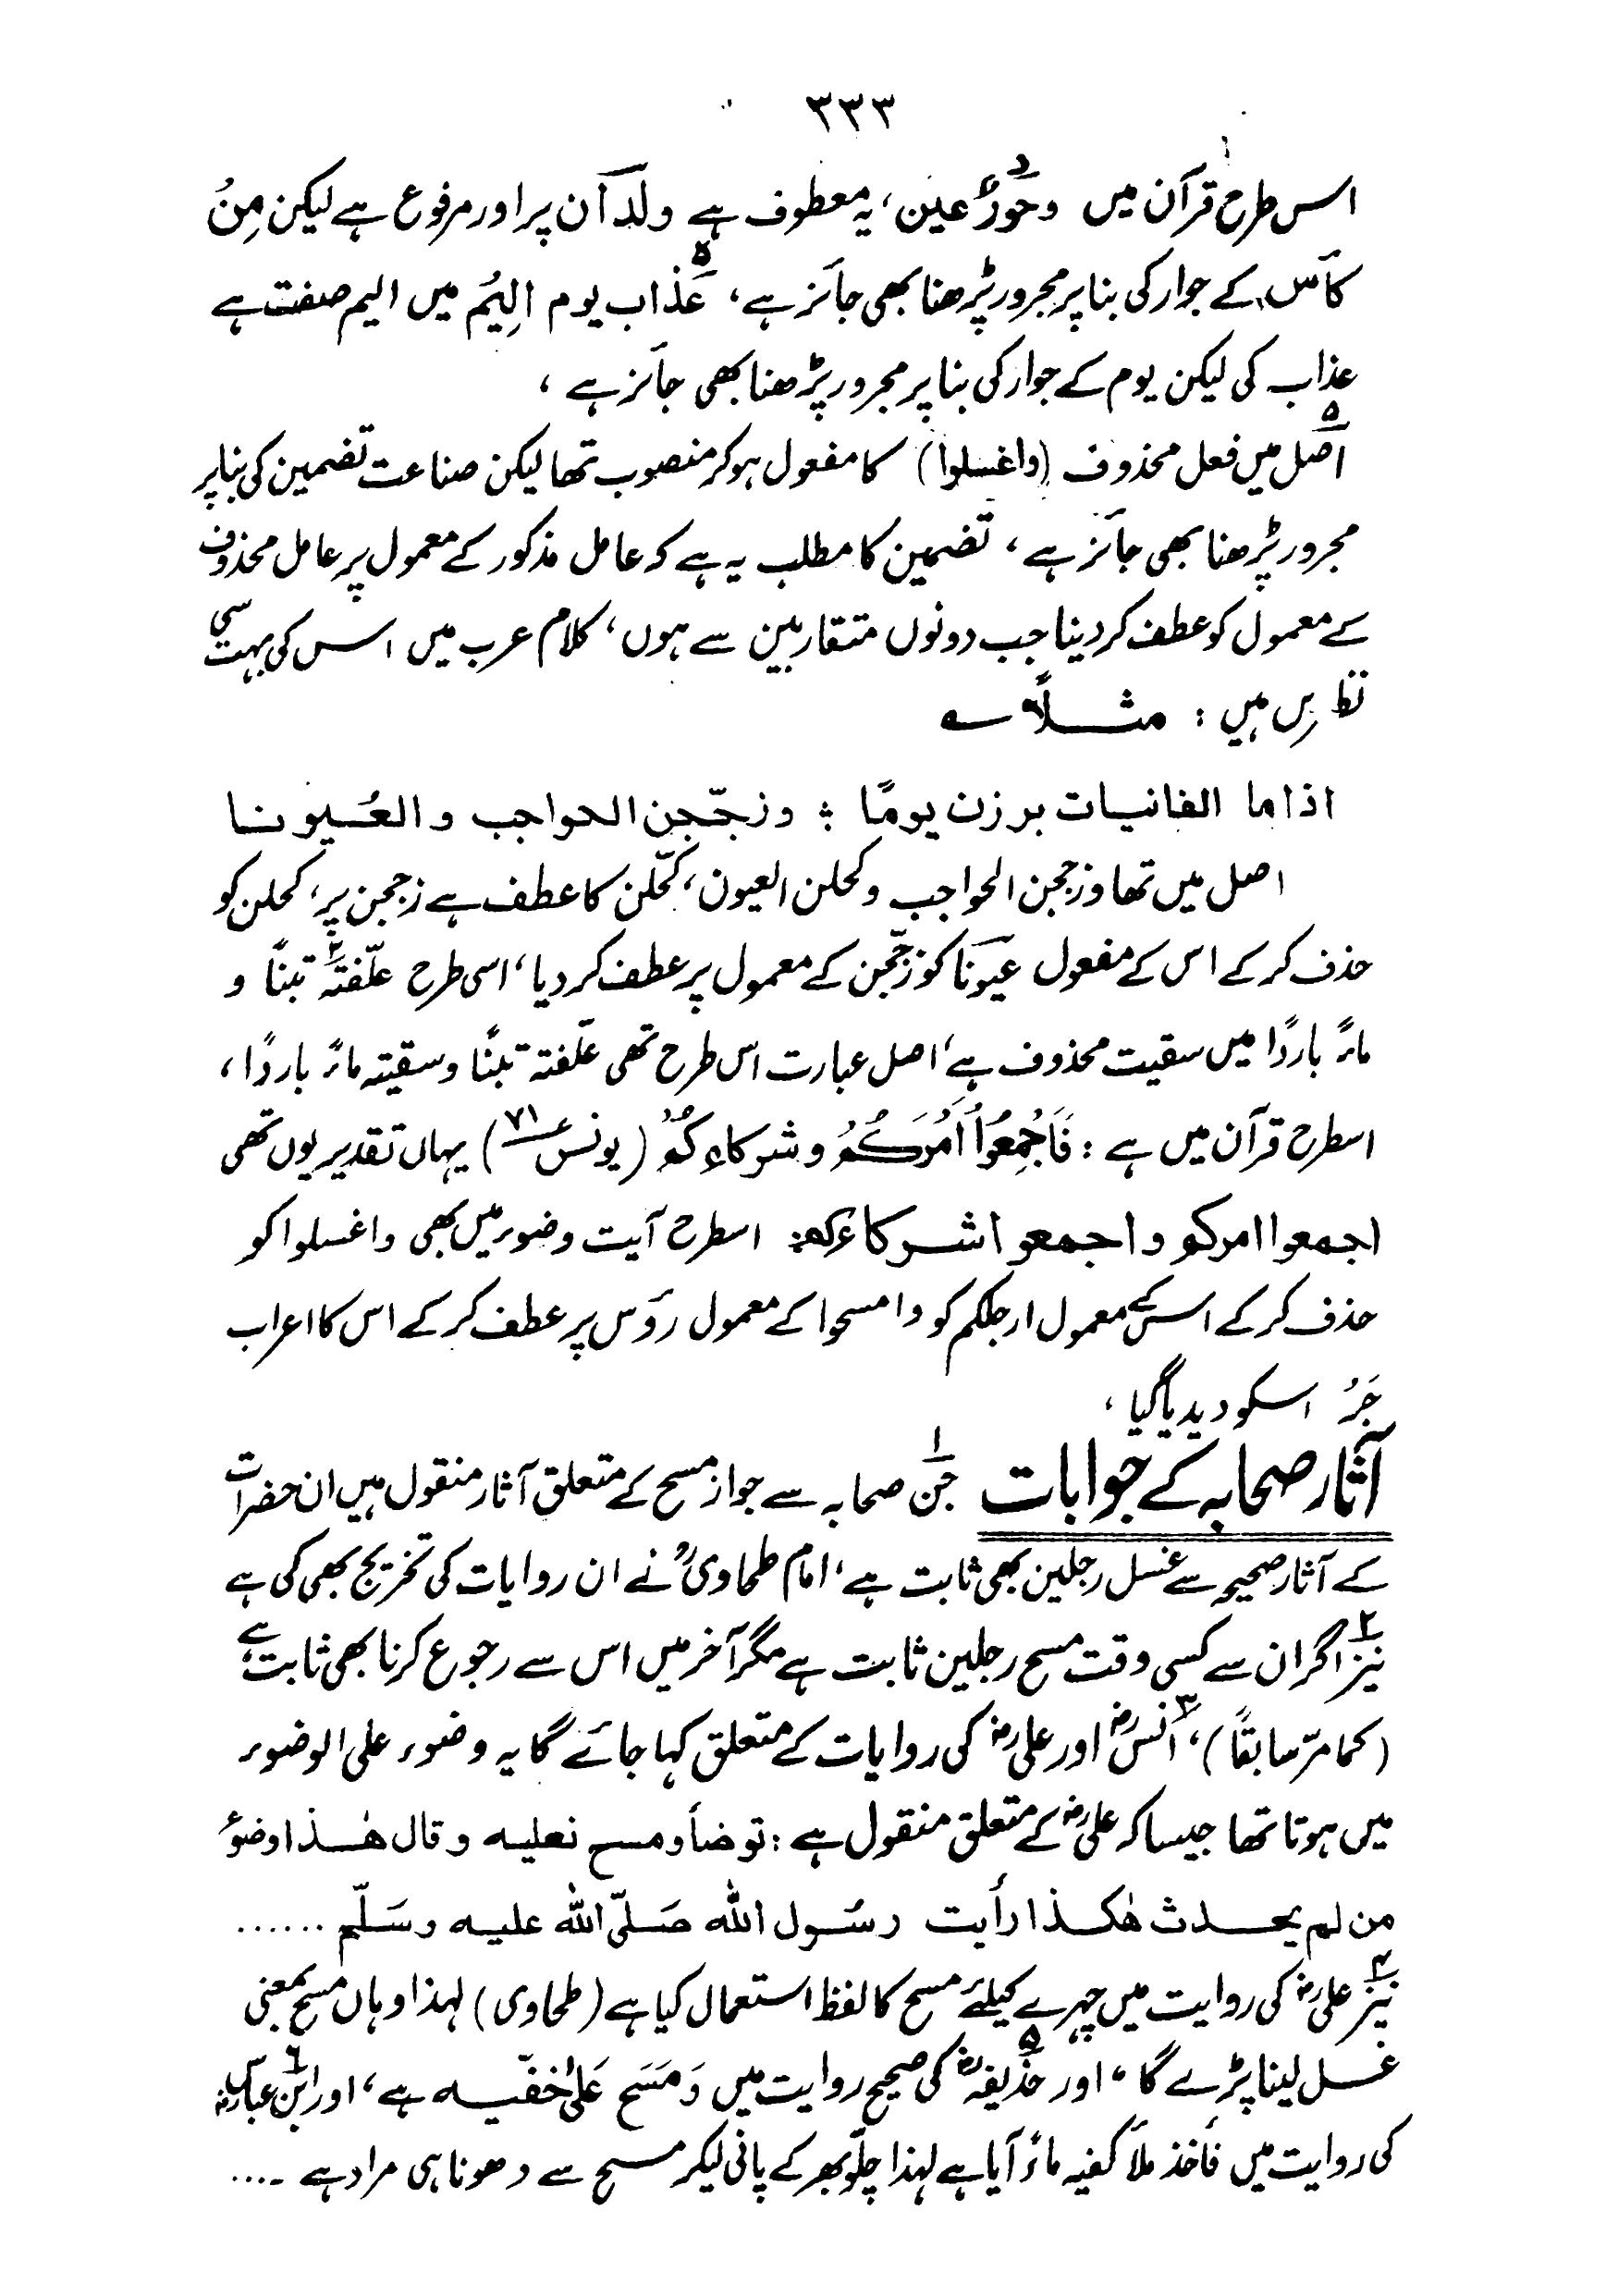 ۳۳۳
اس طرح قرآن میں وحورٌ عین، یہ معطوف ہے ولدآن پر اور مرفوع ہے لیکن مِنْ
کأس کے جوار کی بنا پر مجرور پڑھنا بھی جائز ہے، عذاب یوم الِیْم میں الیم صفت ہے
عذاب کی لیکن یوم کے جوار کی بنا پر مجرور پڑھنا بھی جائز ہے،
۵ اصل میں فعل محذوف (واغسلوا) کا مفعول ہوکر منصوب تھا لیکن صناعت تضمین کی بنا پر
مجرور پڑھنا بھی جائز ہے، تضمین کا مطلب یہ ہے کہ عامل مذکور کے معمول پر عامل محذوف
کے معمول کو عطف کر دینا جب دونوں متقاربین سے ہوں، کلام عرب میں اس کی بہت سی
نظا ریں ہیں : مثــلاً ؎
اذا ما الغانیات برزن یومًا ؛ وزجّجن الحواجب والعُــیونــا
اصل میں تھا وزججن الحواجب وکحلن العیون، کحّلن کا عطف ہے زججن پر، کحلن کو
حذف کر کے اس کے مفعول عیونا کو زجّجن کے معمول پر عطف کر دیا، اسی طرح علّفتہ تبنًا و
ماءً باردًا میں سقیت محذوف ہے، اصل عبارت اس طرح تھی علّفتہ تبنًا وسقیتہ ماءً باردًا،
اسطرح قرآن میں ہے : فَاَجْمِعُوْا اَمْرَکُمْ وشرکاءکمْ (یونس ۷۱) یہاں تقدیر یوں تھی
اجمعوا امرکم واجمعو اشــرکاءکم: اسطرح آیت وضوء میں بھی واغسلوا کو
حذف کر کے اس کے معمول ارجلکم کو وامسحوا کے معمول رؤس پر عطف کر کے اس کا اعراب
جَرْ اسکو دیدیا گیا،
آثار صحابہ کے جوابات ۱ جن صحابہ سے جواز مسح کے متعلق آثار منقول ہیں ان حضرات
کے آثار صحیحہ سے غسل رجلین بھی ثابت ہے، امام طحاویؒ نے ان روایات کی تخریج بھی کی ہے
۲ نیز اگر ان سے کسی وقت مسح رجلین ثابت ہے مگر آخر میں اس سے رجوع کرنا بھی ثابت ہے
(کما مرّ سابقاً)، ۳ انسؓ اور علیؓ کی روایات کے متعلق کہا جائے گا یہ وضوء علی الوضوء
میں ہوتا تھا جیسا کہ علیؓ کے متعلق منقول ہے : توضأ ومسح نعلیه وقال هٰــذا وضوءُ
من لم یحــدث هٰکــذا رأیت رسُول اللّٰه صَلّی اللّٰه علیــه وسَلّم ......
۴ نیز علیؓ کی روایت میں چہرے کیلئے مسح کا لفظ استعمال کیا ہے (طحاوی) لہذا وہاں مسح بمعنی
غسل لینا پڑے گا، ۵ اور حذیفہؓ کی صحیح روایت میں وَمَسَح عَلٰی خفّیــه ہے، ۶ اور ابن عباسؓ
کی روایت میں فأخذ ملأ کفیہ ماءً آیا ہے لہذا چلّو بھر کے پانی لیکر مسح سے دھونا ہی مراد ہے ۔...